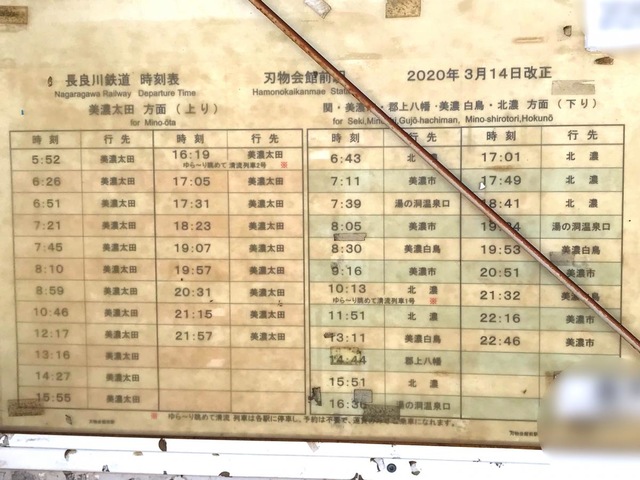 長良川鉄道 時刻表
Nagaragawa Railway Departure Time
刃物会館前
Hamonokaikanmae
2020年 3月14日改正
美濃太田 方面 (上り)
for Mino-ōta
時刻 行先 時刻 行先
5:52 美濃太田 16:19 美濃太田
ゆら〜り眺めて 清流列車2号 ※
6:26 美濃太田 17:05 美濃太田
6:51 美濃太田 17:31 美濃太田
7:21 美濃太田 18:23 美濃太田
7:45 美濃太田 19:07 美濃太田
8:10 美濃太田 19:57 美濃太田
8:59 美濃太田 20:31 美濃太田
10:46 美濃太田 21:15 美濃太田
12:17 美濃太田 21:57 美濃太田
13:16 美濃太田
14:27 美濃太田
15:55 美濃太田
関・美濃市・郡上八幡・美濃白鳥・北濃 方面 (下り)
for Seki, Gujō-hachiman, Mino-shirotori,Hokunō
時刻 行先 時刻 行先
6:43 北濃 17:01 北濃
7:11 美濃市 17:49 北濃
7:39 湯の洞温泉口 18:41 北濃
8:05 美濃市 湯の洞温泉口
8:30 美濃白鳥 19:53 美濃市
9:16 美濃市 20:51 美濃市
10:13 北濃 21:32 美濃白鳥
ゆら〜り眺めて 清流列車1号 ※
11:51 北濃 22:16 美濃市
13:11 美濃白鳥 22:46 美濃市
14:44 郡上八幡
15:51 北濃
16:36 湯の洞温泉口
※ ゆら〜り眺めて清流 列車は各駅に停車し、予約は不要で、運賃のみで乗車になれます。